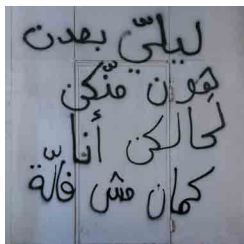 ليلّي بعدن
هون منّكن
لحالكن أنا
كمان مش فالّة